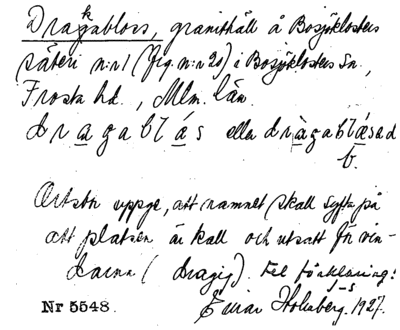 Dragabloss, granithäll å Bosjöklosters
säteri n:r 1 (fig. n:r 20) i Bosjöklosters sn.,
Frosta hd., Mlm. län
dragablás eller dràgablásad
b.
Ortsbn uppge, att namnet skall syfta på
att platsen är kall och utsatt för vin-
darna (dragig). Fel förklaring!
J-s
Nr 5548. Einar Holmberg. 1927.